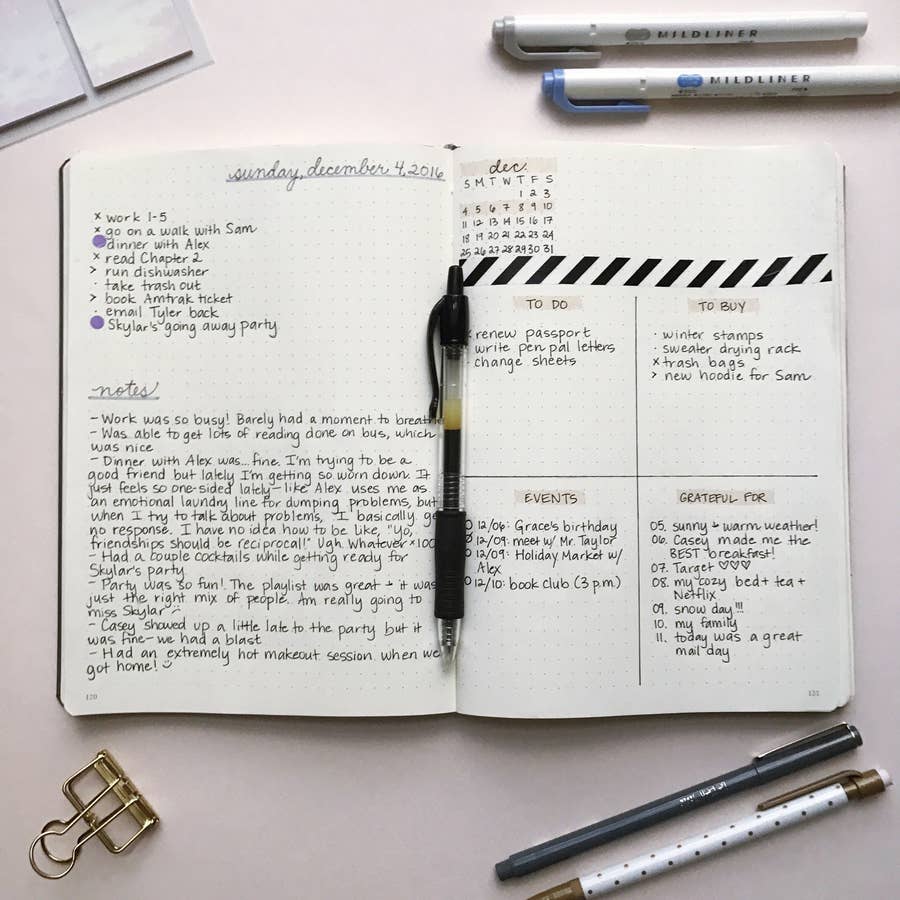 MILDLINER
MILDLINER
sunday, december 4, 2016
x work 1-5
x go on a walk with Sam
dinner with Alex
x read Chapter 2
> run dishwasher
· take trash out
> book Amtrak ticket
· email Tyler back
Skylar's going away party
notes
- Work was so busy! Barely had a moment to breathe
- Was able to get lots of reading done on bus, which
was nice
- Dinner with Alex was... fine. I'm trying to be a
good friend but lately I'm getting so worn down. It
just feels so one-sided lately - like Alex uses me as
an emotional laundry line for dumping problems, but
when I try to talk about problems, I basically
no response. I have no idea how to be like, "Yo,
friendships should be reciprocal!" Ugh. Whatever x100
- Had a couple cocktails while getting ready for
Skylar's party
- Party was so fun! The playlist was great + it was
just the right mix of people. Am really going to
miss Skylar :(
- Casey showed up a little late to the party but it
was fine - we had a blast
- Had an extremely hot makeout session when we
got home! :)
120
dec.
S M T W T F S
1 2 3
4 5 6 7 8 9 10
11 12 13 14 15 16 17
18 19 20 21 22 23 24
25 26 27 28 29 30 31
TO DO
x renew passport
write pen pal letters
change sheets
TO BUY
· winter stamps
· sweater drying rack
x trash bags
> new hoodie for Sam
EVENTS
12/06: Grace's birthday
12/09: meet w/ Mr. Taylor
12/09: Holiday Market w/
Alex
12/10: book club (3 p.m.)
GRATEFUL FOR
05. sunny + warm weather!
06. Casey made me the
BEST breakfast!
07. Target ♡♡♡
08. my cozy bed + tea +
Netflix
09. snow day!!!
10. my family
11. today was a great
mail day
121